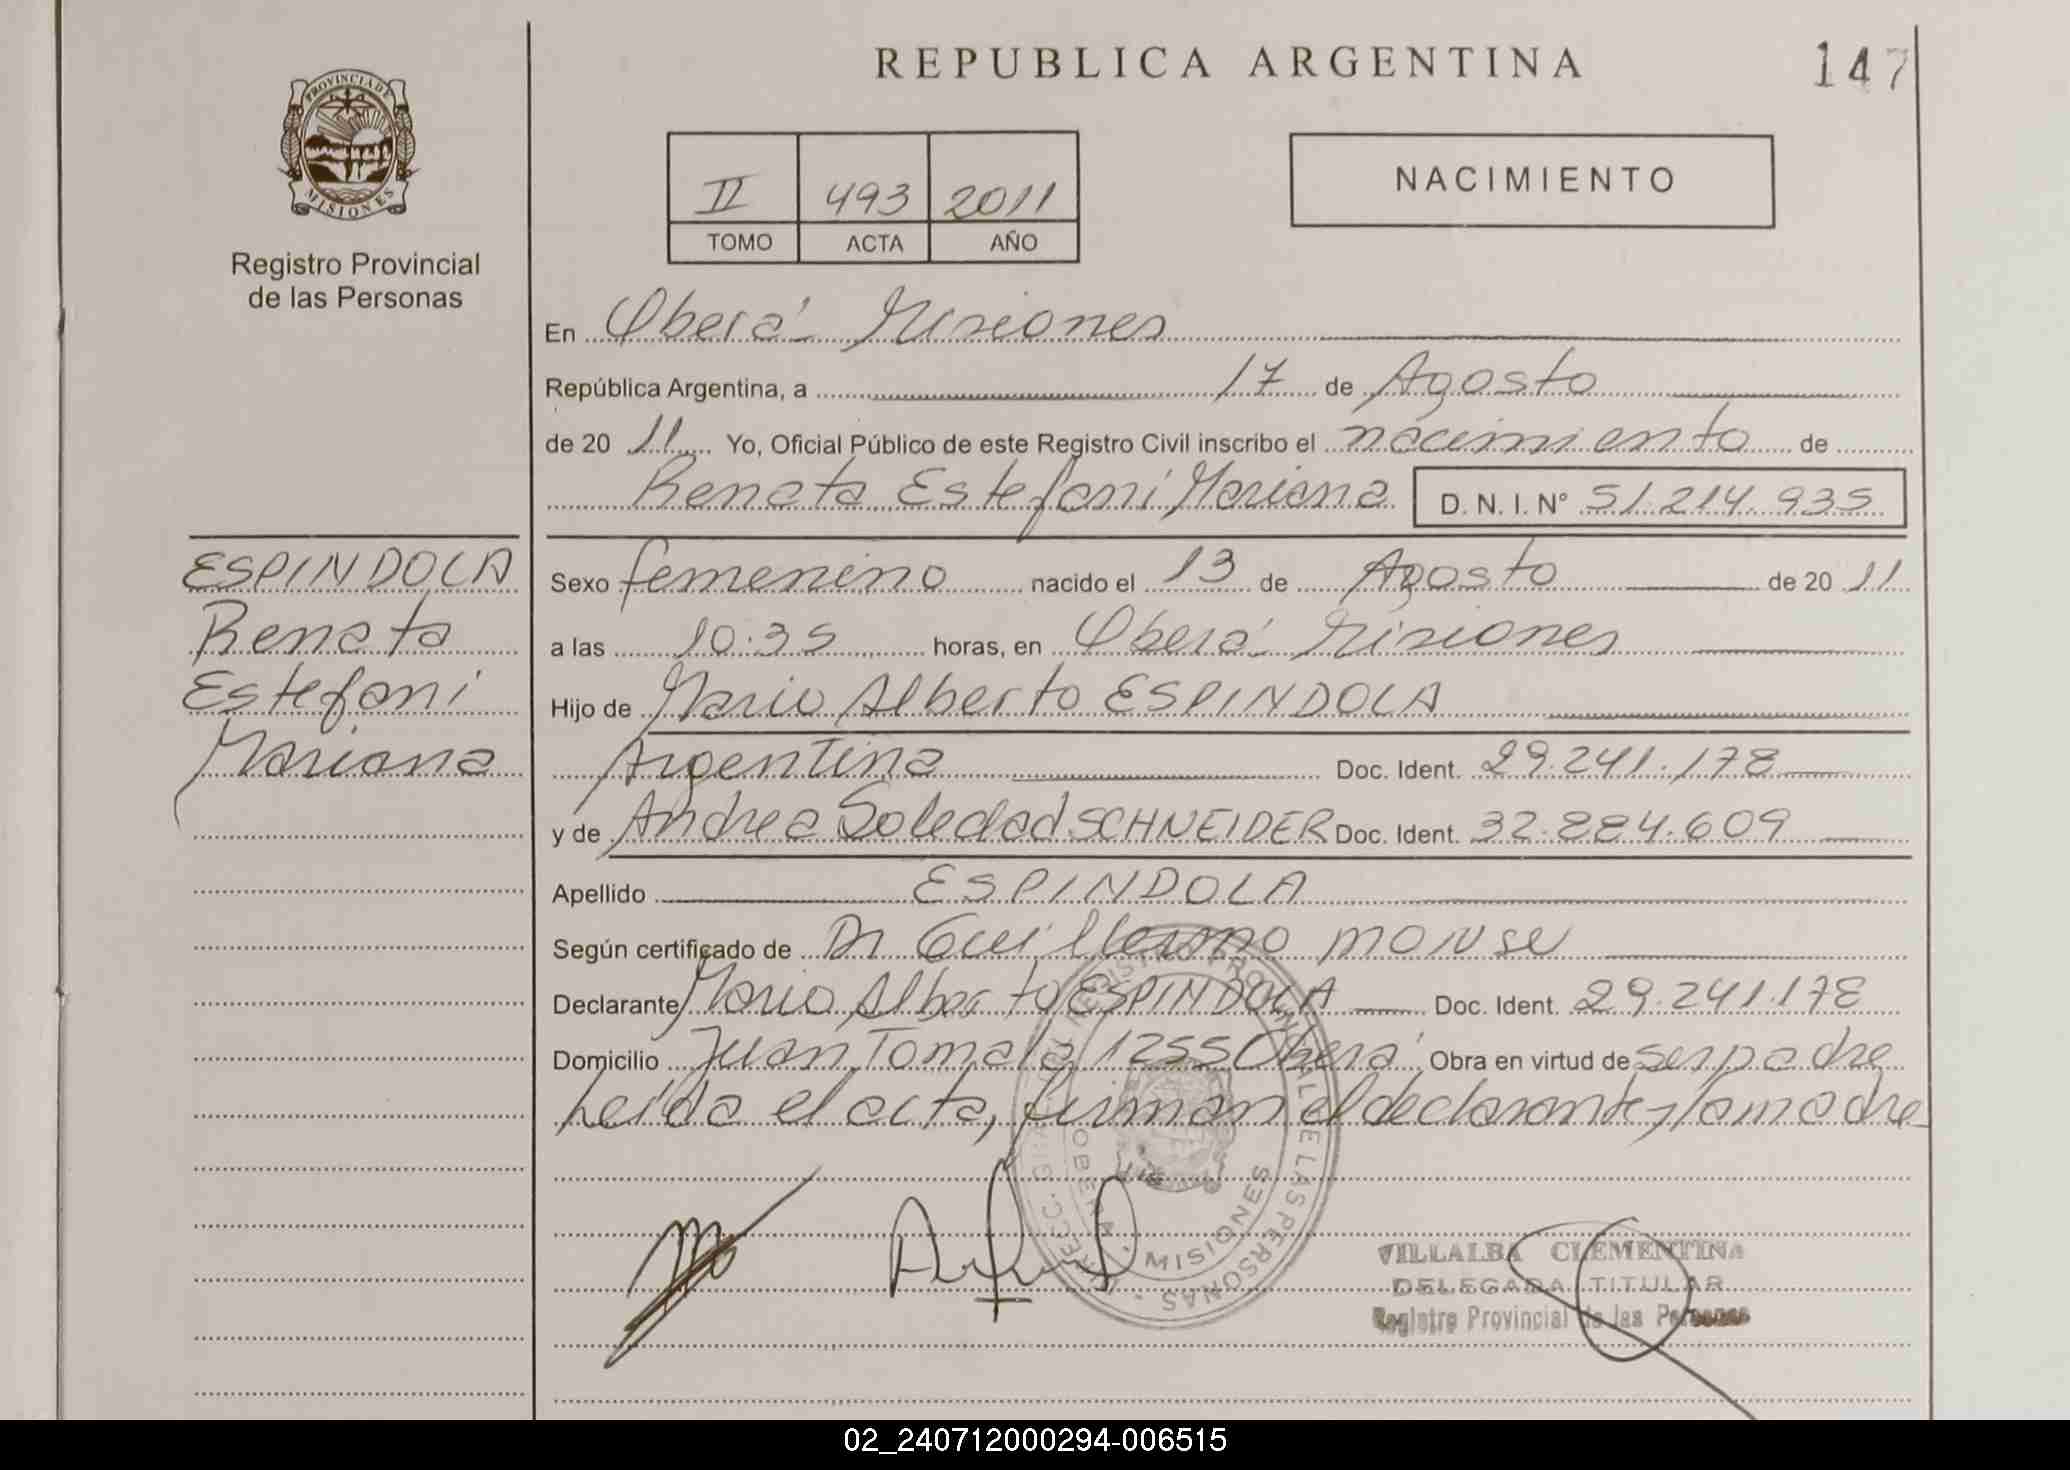 REPUBLICA ARGENTINA
147
PROVINCIA DE
MISIONES
Registro Provincial
de las Personas
II 493 2011
TOMO ACTA AÑO
NACIMIENTO
En Oberá - Misiones
República Argentina, a 17 de Agosto
de 20 11 Yo, Oficial Público de este Registro Civil inscribo el nacimiento de
Renata Estefani Mariana D. N. I. N° 51.214.935
ESPINDOLA
Renata
Estefani
Mariana
Sexo femenino nacido el 13 de Agosto de 20 11
a las 10:35 horas, en Oberá - Misiones
Hijo de Mario Alberto ESPINDOLA
Argentina Doc. Ident. 29.241.178
y de Andrea Soledad SCHNEIDER Doc. Ident. 32.884.609
Apellido ESPINDOLA
Según certificado de Dr Guillermo
Declarante Mario Alberto ESPINDOLA Doc. Ident. 29.241.178
Domicilio Juan Tomala 1255 Oberá Obra en virtud de ser padre
Leída el acta, firman el declarante y la madre
REGISTRO PROVINCIAL DE LAS PERSONAS
OBERA - MISIONES
VILLALBA CLEMENTINA
DELEGADA TITULAR
Registro Provincial de las Personas
02_240712000294-006515